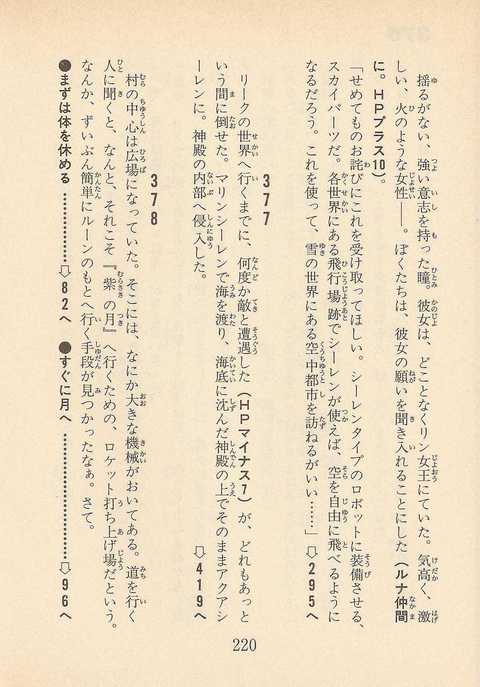 揺るがない、強い意志を持った瞳。彼女は、どことなくリン女王にていた。気高く、激
しい、火のような女性――。ぼくたちは、彼女の願いを聞き入れることにした（ルナ仲間
に。ＨＰプラス10）。
「せめてものお詫びにこれを受け取ってほしい。シーレンタイプのロボットに装備させる、
スカイパーツだ。各世界にある飛行場跡でシーレンが使えば、空を自由に飛べるように
なるだろう。これを使って、雪の世界にある空中都市を訪ねるがいい……」⇨295へ
377
リークの世界へ行くまでに、何度か敵と遭遇した（ＨＰマイナス7）が、どれもあっと
いう間に倒せた。マリンシーレンで海を渡り、海底に沈んだ神殿の上でそのままアクアシ
ーレンに。神殿の内部へ侵入した。⇨419へ
378
村の中心は広場になっていた。そこには、なにか大きな機械がおいてある。道を行く
人に聞くと、なんと、それこそ『紫の月』へ行くための、ロケット打ち上げ場だという。
なんか、ずいぶん簡単にルーンのもとへ行く手段が見つかったなぁ。さて。
●まずは体を休める…………⇨82へ　●すぐに月へ…………⇨96へ
220